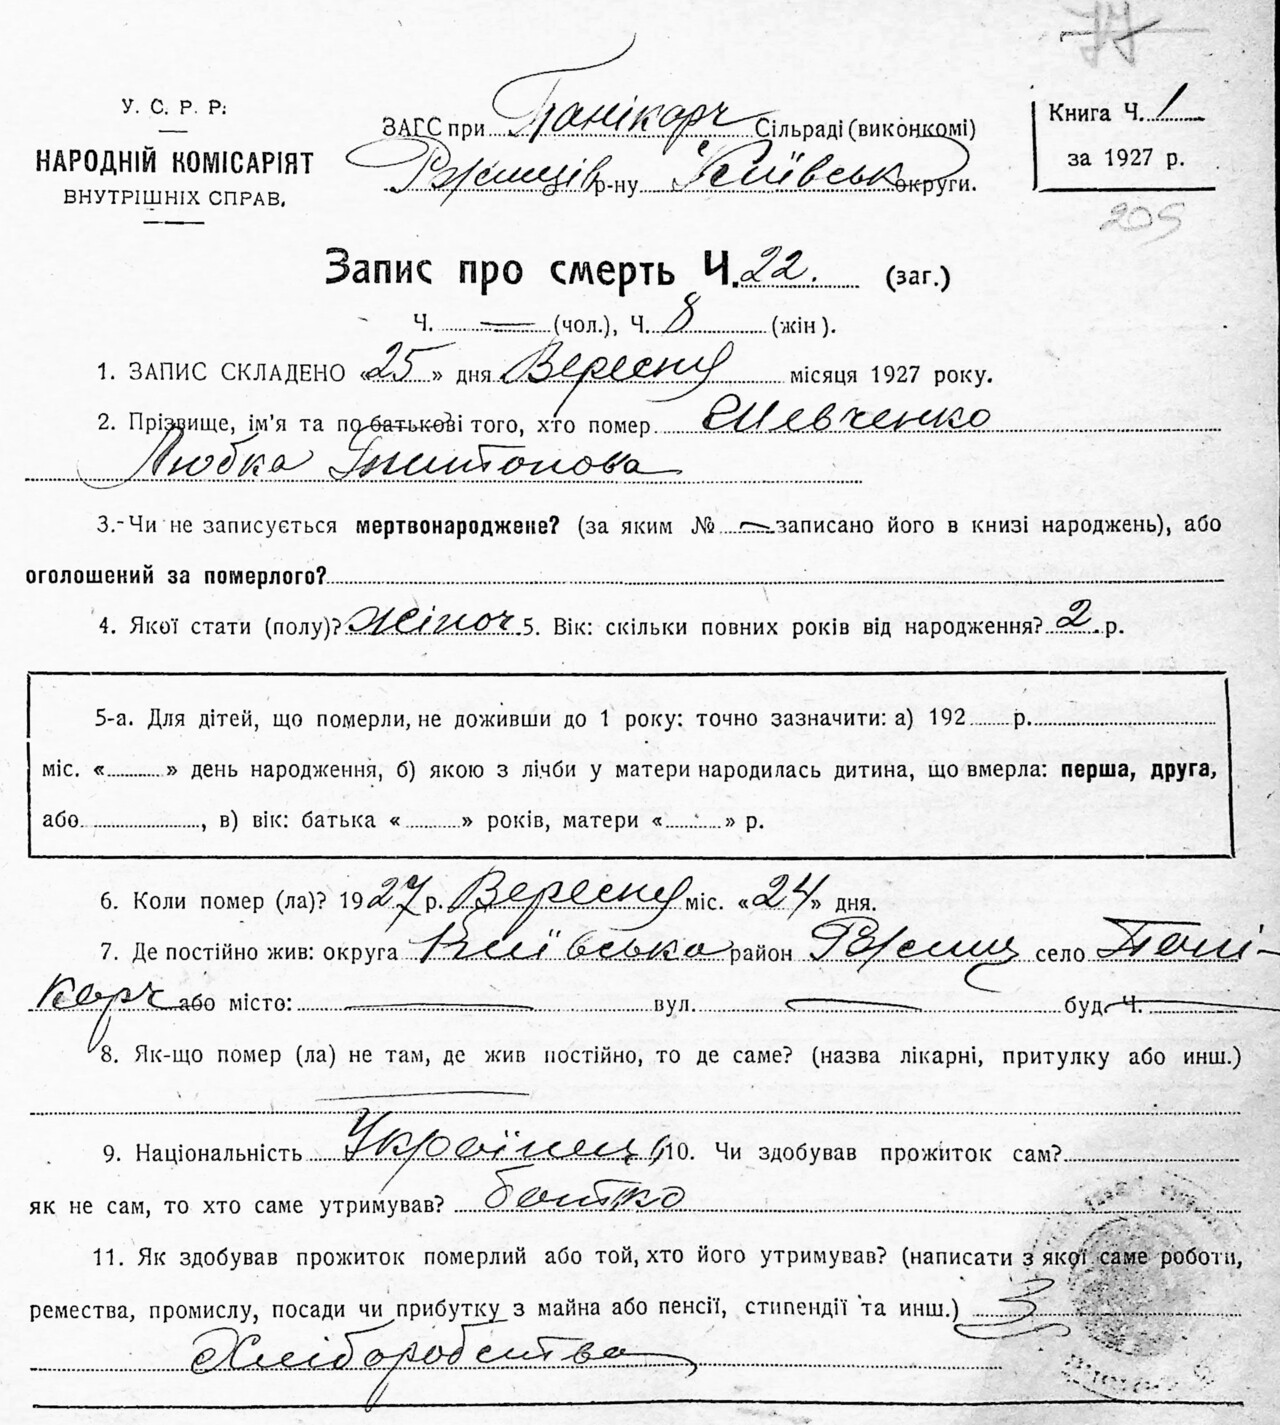 77
У. С. Р. Р.
НАРОДНІЙ КОМІСАРІЯТ
ВНУТРІШНІХ СПРАВ.
ЗАГС при Панікарч Сільраді (виконкомі)
Ржищів р-ну Київськ округи.
Книга Ч. 1
за 1927 р.
205
Запис про смерть Ч. 22. (заг.)
Ч. — (чол.), Ч. 8 (жін).
1. ЗАПИС СКЛАДЕНО «25» дня Вересня місяця 1927 року.
2. Прізвище, ім'я та по батькові того, хто помер Шевченко
Любка
3.-Чи не записується мертвонароджене? (за яким № — записано його в книзі народжень), або
оголошений за померлого?
4. Якої стати (полу)? жіноч 5. Вік: скільки повних років від народження? 2 р.
5-а. Для дітей, що померли, не доживши до 1 року: точно зазначити: а) 192 р.
міс. « » день народження, б) якою з лічби у матери народилась дитина, що вмерла: перша, друга,
або , в) вік: батька « » років, матери « » р.
6. Коли помер (ла)? 1927 р. Вересня міс. «24» дня.
7. Де постійно жив: округа Київська район Ржищ село Пані-
карч або місто: — вул. — буд. Ч. —
8. Як-що помер (ла) не там, де жив постійно, то де саме? (назва лікарні, притулку або инш.)
—
9. Національність Українец 10. Чи здобував прожиток сам?
як не сам, то хто саме утримував? батько
11. Як здобував прожиток померлий або той, хто його утримував? (написати з якої саме роботи,
ремества, промислу, посади чи прибутку з майна або пенсії, стипендії та инш.) З
Хліборобства